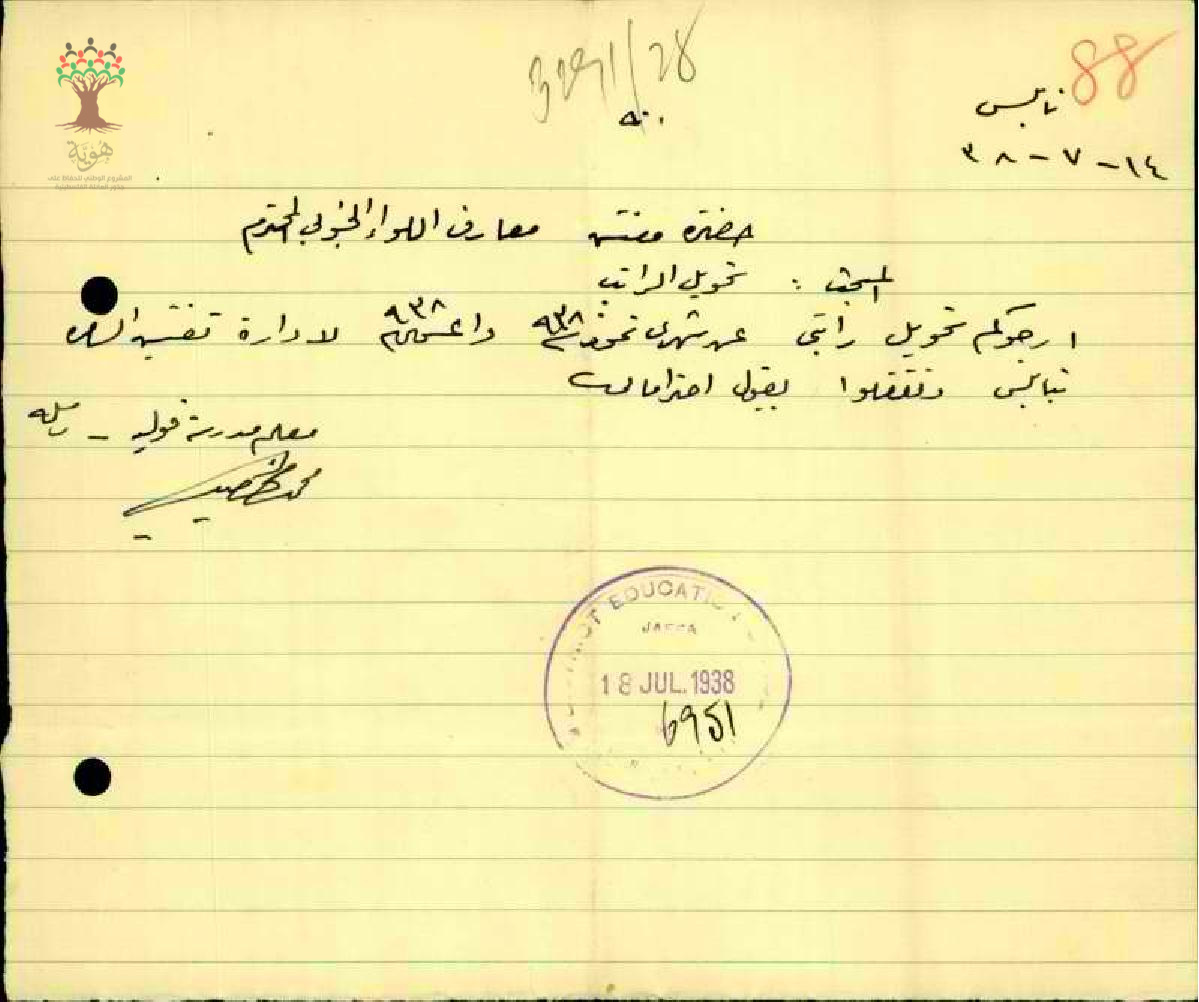 88
3291/28
نابلس
١٤-٧-٣٨
هوية
المشروع الوطني للحفاظ على
جذور العائلة الفلسطينية
حضرة مفتش معارف اللواء الجنوبي المحترم
المبحث : تحويل الراتب
ارجوكم تحويل راتبي عن شهري تموز ٩٣٨ واغسطس ٩٣٨ لادارة تفتيش
بنابلس وتفضلوا بقبول احتراماتي
معلم مدرسة قوليه - رمله
محمد
DISTRICT EDUCATION
JAFFA
18 JUL. 1938
6951